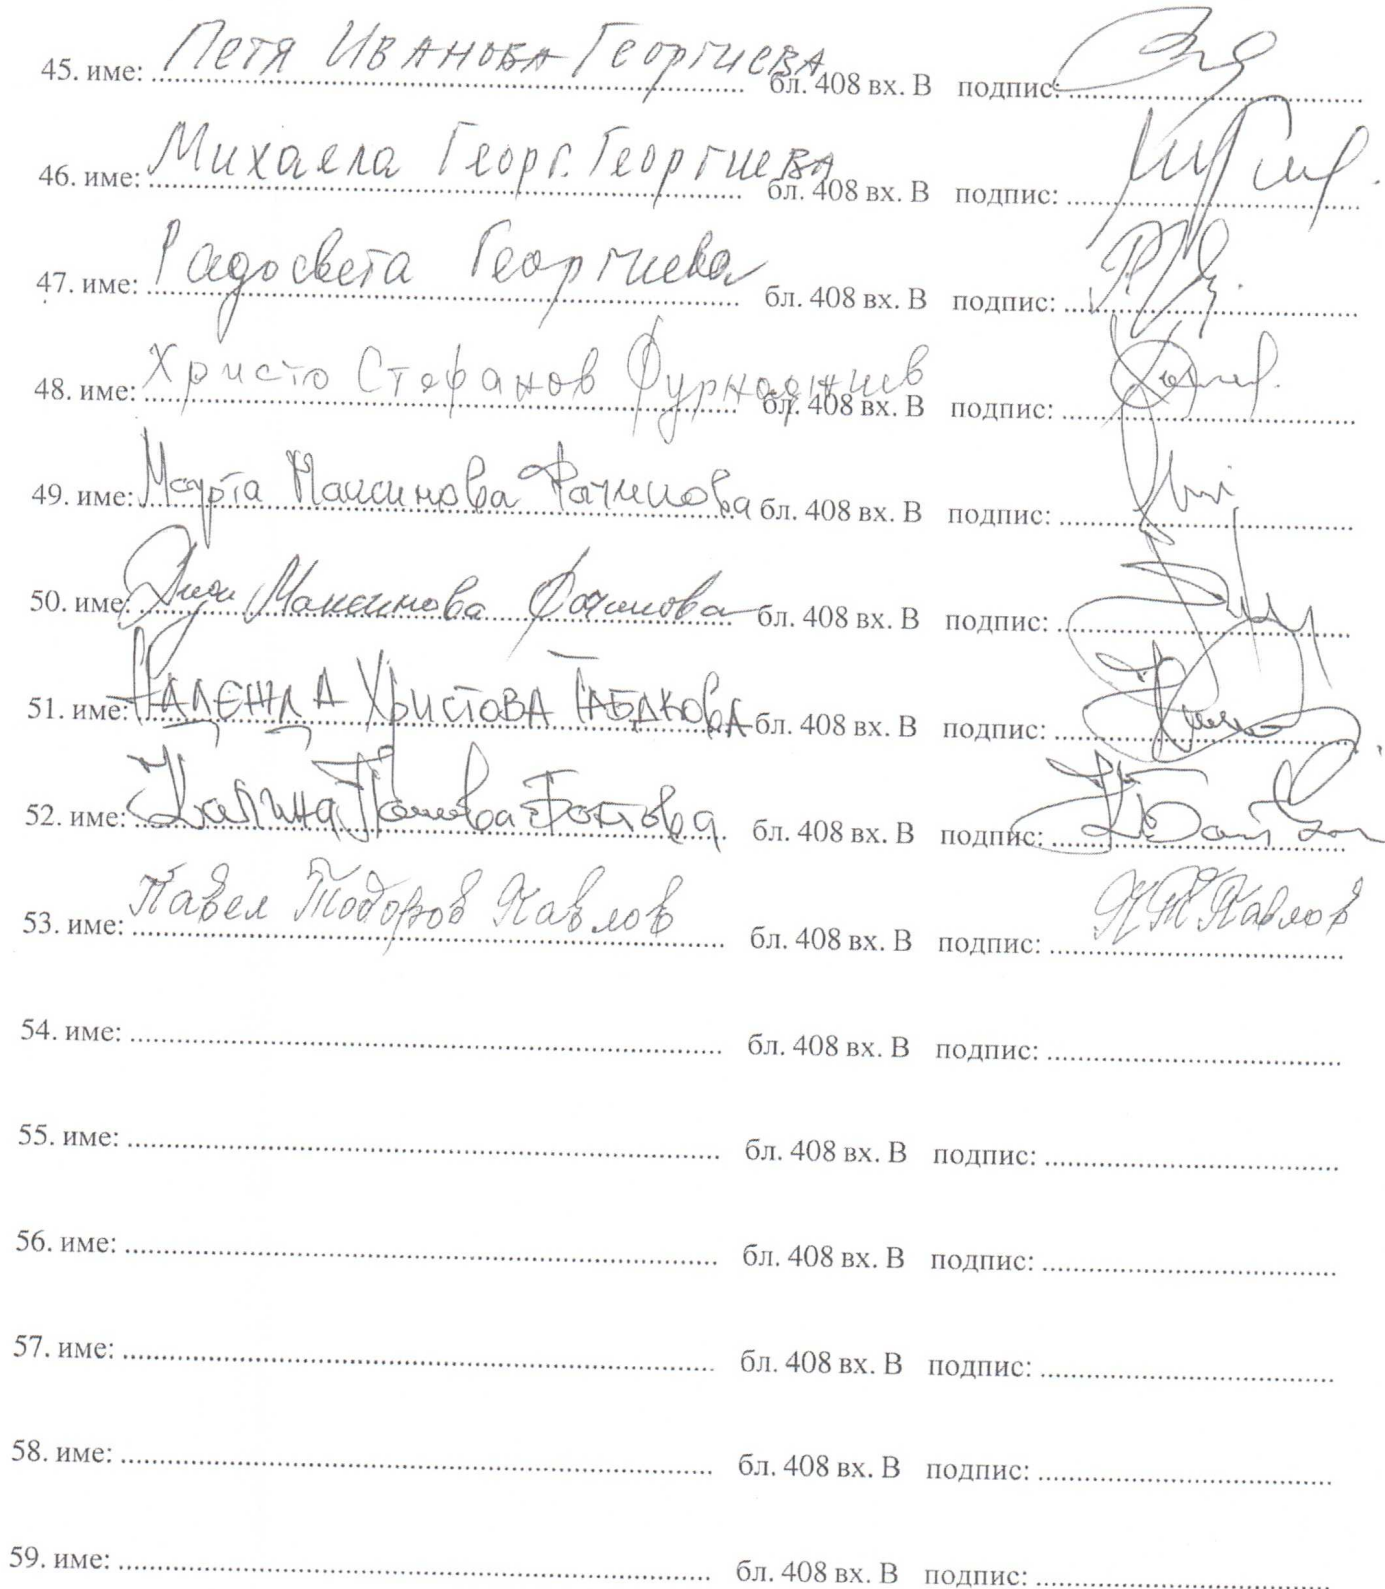 45. име: Петя Иванова Георгиева бл. 408 вх. В подпис:
46. име: Михаела Георг. Георгиева бл. 408 вх. В подпис:
47. име: Радосвета Георгиева бл. 408 вх. В подпис:
48. име: Христо Стефанов Фурнаджиев бл. 408 вх. В подпис:
49. име: Марта Максимова бл. 408 вх. В подпис:
50. име: Максимова бл. 408 вх. В подпис:
51. име: Надежда Христова Табакова бл. 408 вх. В подпис:
52. име: Калина бл. 408 вх. В подпис:
53. име: Павел Тодоров Павлов бл. 408 вх. В подпис: ПТПавлов
54. име: бл. 408 вх. В подпис:
55. име: бл. 408 вх. В подпис:
56. име: бл. 408 вх. В подпис:
57. име: бл. 408 вх. В подпис:
58. име: бл. 408 вх. В подпис:
59. име: бл. 408 вх. В подпис: